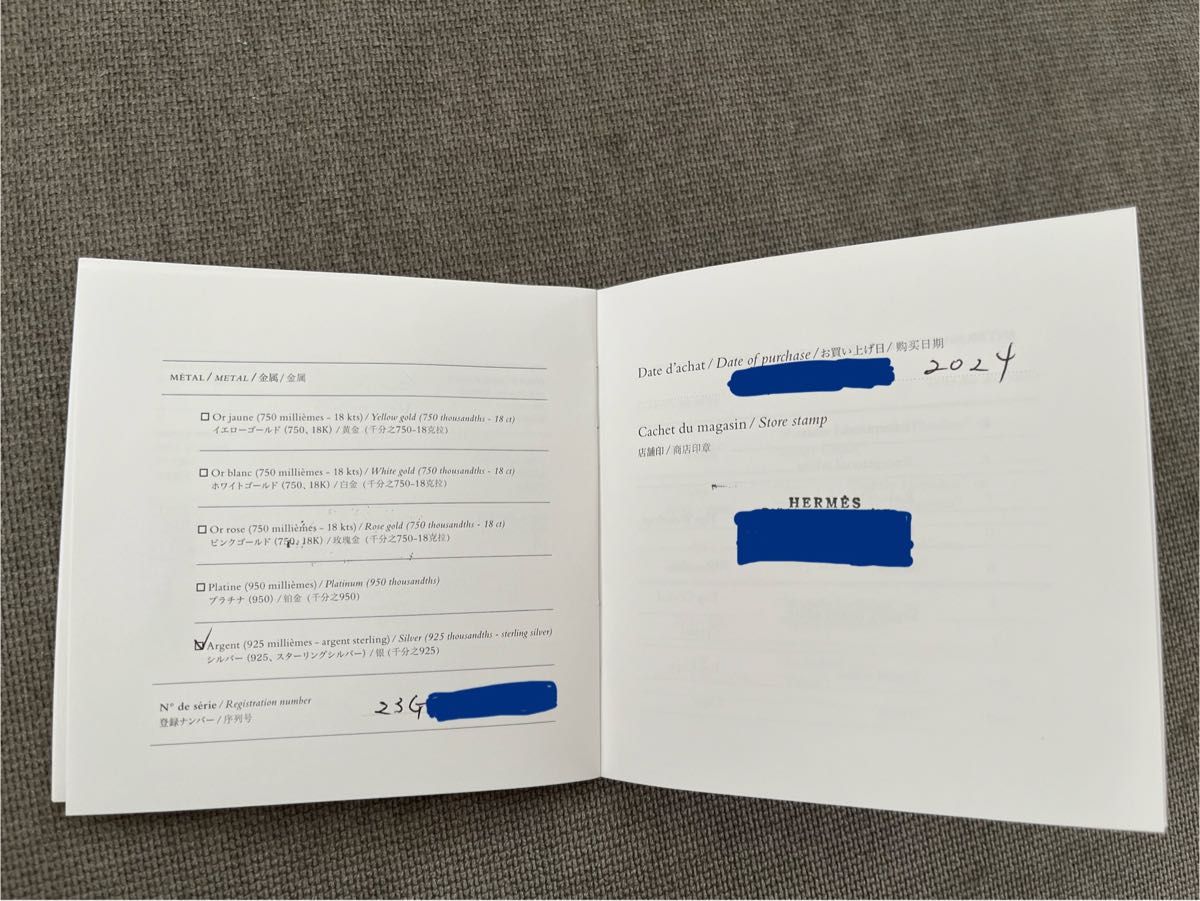 MÉTAL / METAL / 金属 / 金属
Or jaune (750 millièmes - 18 kts) / Yellow gold (750 thousandths - 18 ct)
イエローゴールド (750、18K) / 黄金 (千分之750-18克拉)
Or blanc (750 millièmes - 18 kts) / White gold (750 thousandths - 18 ct)
ホワイトゴールド (750、18K) / 白金 (千分之750-18克拉)
Or rose (750 millièmes - 18 kts) / Rose gold (750 thousandths - 18 ct)
ピンクゴールド (750、18K) / 玫瑰金 (千分之750-18克拉)
Platine (950 millièmes) / Platinum (950 thousandths)
プラチナ (950) / 铂金 (千分之950)
Argent (925 millièmes - argent sterling) / Silver (925 thousandths - sterling silver)
シルバー (925、スターリングシルバー) / 银 (千分之925)
N° de série / Registration number
登録ナンバー / 序列号
23G
Date d'achat / Date of purchase / お買い上げ日 / 购买日期
2024
Cachet du magasin / Store stamp
店舗印 / 商店印章
HERMÈS